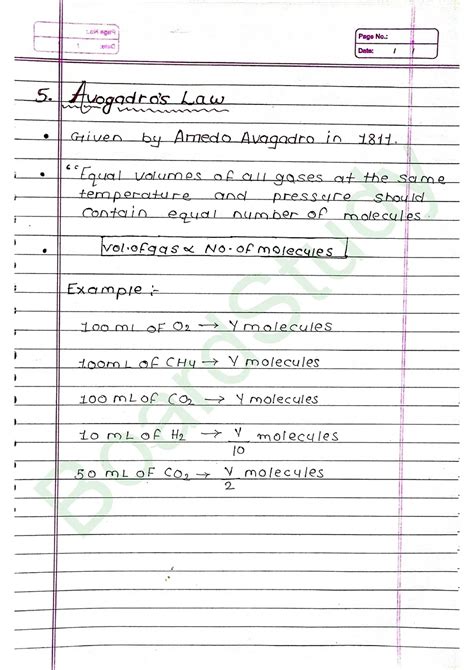 Page No.:
Date: / /
5. Avogadro's Law
• Given by Amedo Avagadro in 1811.
• "Equal volumes of all gases at the same
temperature and pressure should
contain equal number of molecules.
• Vol. of gas ∝ No. of molecules
Example :-
100 mL of O2 → Y molecules
100mL of CH4 → Y molecules
100 mL of CO2 → Y molecules
10 mL of H2 → Y/10 molecules
50 mL of CO2 → Y/2 molecules
BoardStudy